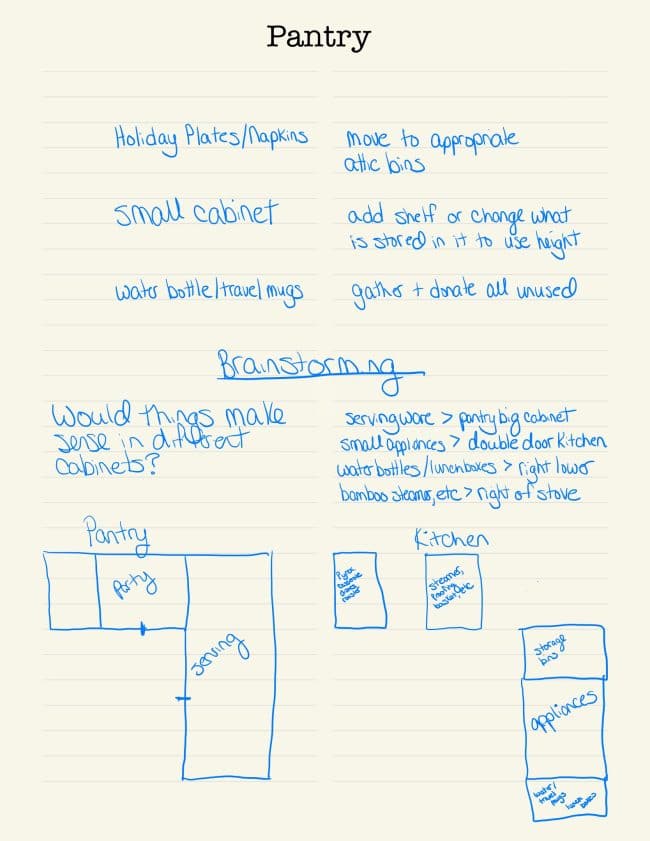 Pantry
Holiday Plates/Napkins
move to appropriate
attic bins
small cabinet
add shelf or change what
is stored in it to use height
water bottle/travel mugs
gather + donate all unused
Brainstorming
Would things make
sense in different
cabinets?
servingware > pantry big cabinet
small appliances > double door kitchen
water bottles/lunchboxes > right lower
bamboo steamer, etc > right of stove
Pantry
party
serving
Kitchen
Pyrex
steamer,
proofing
basket, etc
storage
bins
appliances
water/
travel
mugs
lunch
boxes